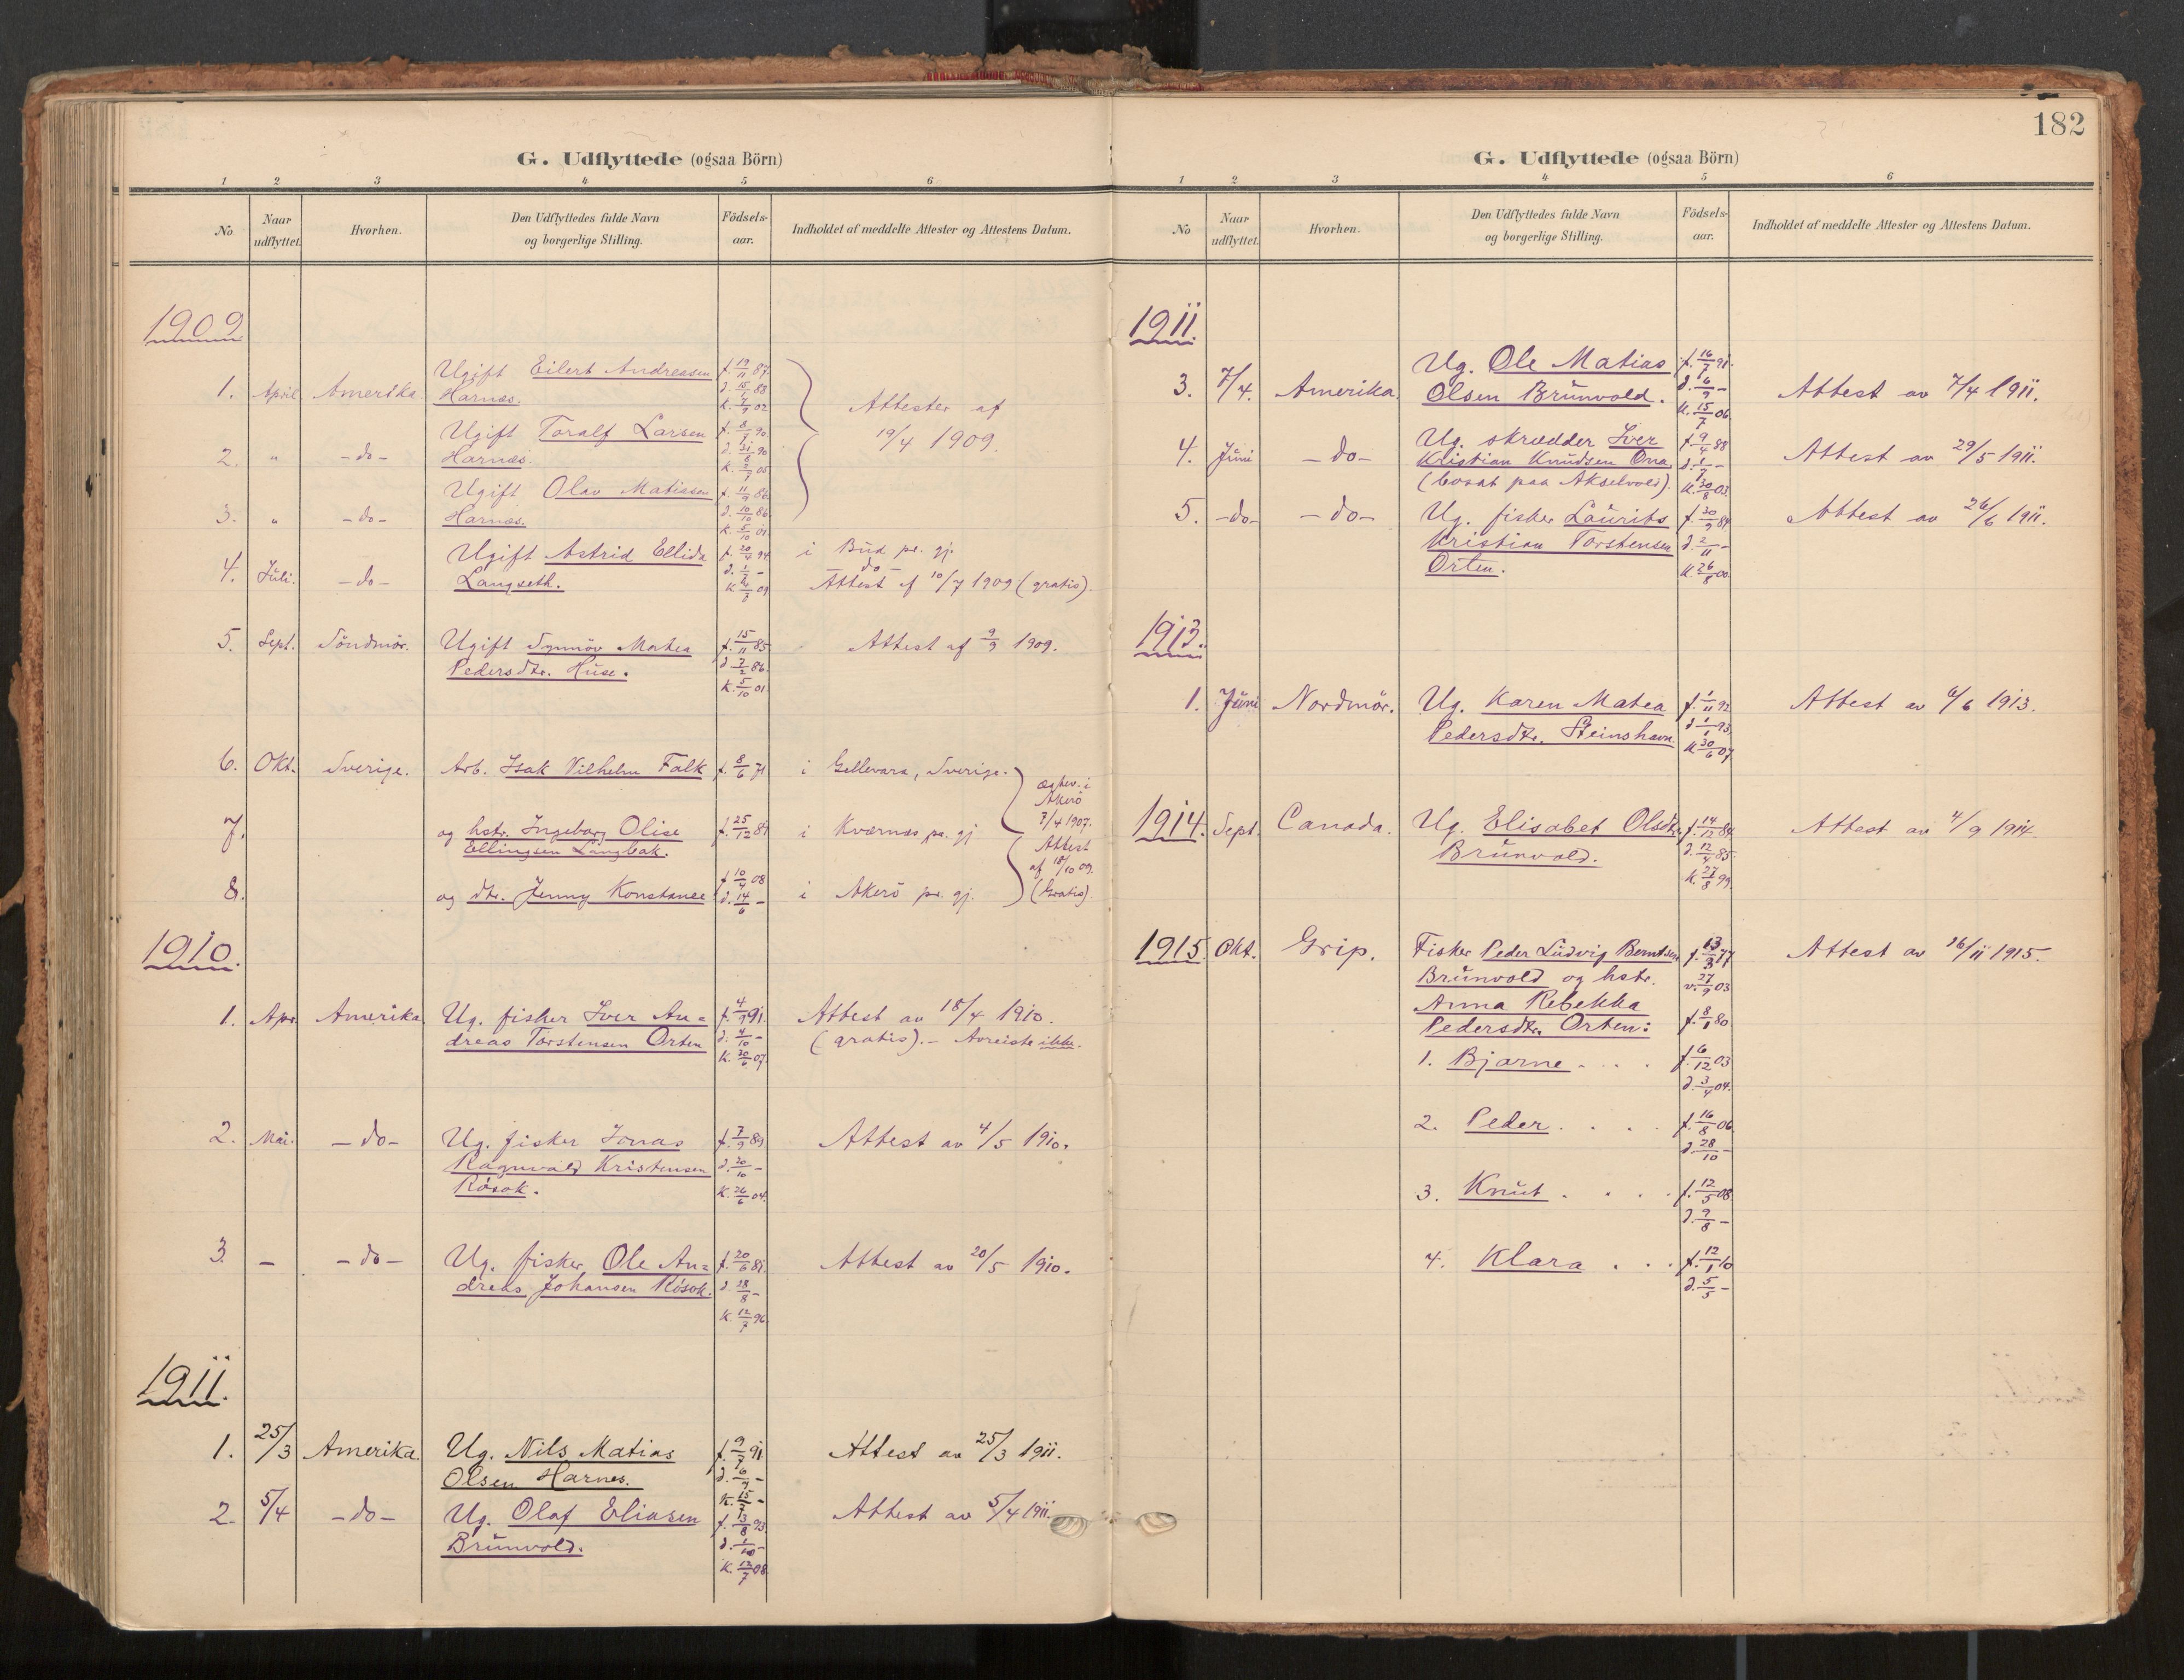 G. Udflyttede (ogsaa Börn)
1 2 3 4 5 6
No Naar udflyttet. Hvorhen. Den Udflyttedes fulde Navn og borgerlige Stilling. Födsels-aar. Indholdet af meddelte Attester og Attestens Datum.
1909
1. April Amerika Ugift Eilert Andreasen f. 19/11 87
Harnæs. d. 15/4 88
k. 7/9 02
Attester af
19/4 1909.
2. " -do- Ugift Toralf Larsen f. 8/7 90
Harnæs. d. 31/8 90
k. 05
3. " -do- Ugift Olav Matiasen f. 11/9 86
Harnæs. d. 10/10 86
k. 5/10 01
4. Juli. -do- Ugift Astrid Ellida f. 20/4 94 i Bud pr. gj.
Langseth. d. - - do -
k. 09 Attest af 10/7 1909 (gratis).
5. Sept. Söndmör. Ugift Synnöv Matea f. 15/11 85 Attest af 9/9 1909.
Pedersdtr. Huse. d. 7/2 86
k. 5/10 01.
6. Okt. Sverige. Arb. Isak Vilhelm Falk f. 8/6 71 i Gellevara, Sverige.
ægtev. i
Akerö
7/4 1907.
7. og hstr. Ingeborg Olise f. 25/12 87 i Kværnæs pr. gj
Ellingsen Langbak.
Attest
af 18/10 09.
(Gratis).
8. og dtr. Jenny Konstanse f. 10/4 08 i Akerö pr. gj.
d. 14/6 -
1910.
1. Apr. Amerika. Ug. fisker Iver An= f. 4/9 91. Attest av 18/4 1910.
dreas Torstensen Orten d. 4/10 - (gratis). - Avreiste ikke.
k. 30/6 07.
2. Mai. - do - Ug. fisker Jonas f. 7/9 89 Attest av 4/5 1910.
Ragnvald Kristensen d. 20/10 -
Rösok. k. 26/6 04.
3. - - do - Ug. fisker Ole An= f. 20/6 81. Attest av 20/5 1910.
dreas Johansen Rösok. d. 28/8 -
k. 12/7 96.
1911.
1. 25/3 Amerika. Ug. Nils Matias f. 9/7 91 Attest av 25/3 1911.
Olsen Harnes. d. 6/9 -
k. 15/7 -
2. 5/4 - do - Ug. Olaf Eliasen f. 13/8 93 Attest av 5/4 1911.
Brunvold. d. 1/10 -
k. 12/7 08.
182
G. Udflyttede (ogsaa Börn)
1 2 3 4 5 6
No Naar udflyttet. Hvorhen. Den Udflyttedes fulde Navn og borgerlige Stilling. Födsels-aar. Indholdet af meddelte Attester og Attestens Datum.
1911.
3. 7/4. Amerika. Ug. Ole Matias f. 16/7 91.
Olsen Brunvold. d. 6/9 - Attest av 7/4 1911.
k. 15/7 06
4. Juni - do - Ug. skrædder Iver f. 9/4 88
Kristian Knudsen Ona d. 1/7 - Attest av 29/5 1911.
(bosat paa Akselvold). k. 30/8 03.
5. - do - - do - Ug. fisker Laurits f. 30/9 84 Attest av 26/6 1911.
Kristian Torstensen d. 2/11 -
Orten. k. 26/8 00.
1913.
1. Juni Nordmör. Ug. Karen Matea f. 1/11 92 Attest av 6/6 1913.
Pedersdtr. Steinshavn. d. 1/1 93
k. 30/6 07
1914. Sept. Canada. Ug. Elisabet Olsdtr. f. 14/12 84 Attest av 4/9 1914.
Brunvold. d. 12/4 85
k. 27/8 99.
1915. Okt. Grip. Fisker Peder Ludvig Berntsen f. 13/3 77 Attest av 16/11 1915.
Brunvold og hstr. v. 27/9 03
Anna Rebekka
Pedersdtr. Orten: f. 8/1 80
1. Bjarne . . . f. 6/12 03
d. 3/4 04.
2. Peder . . . f. 16/8 06
d. 28/10 -
3. Knut . . . f. 12/5 08
d. 9/8 -
4. Klara . . f. 12/1 10
d. 5/5 -